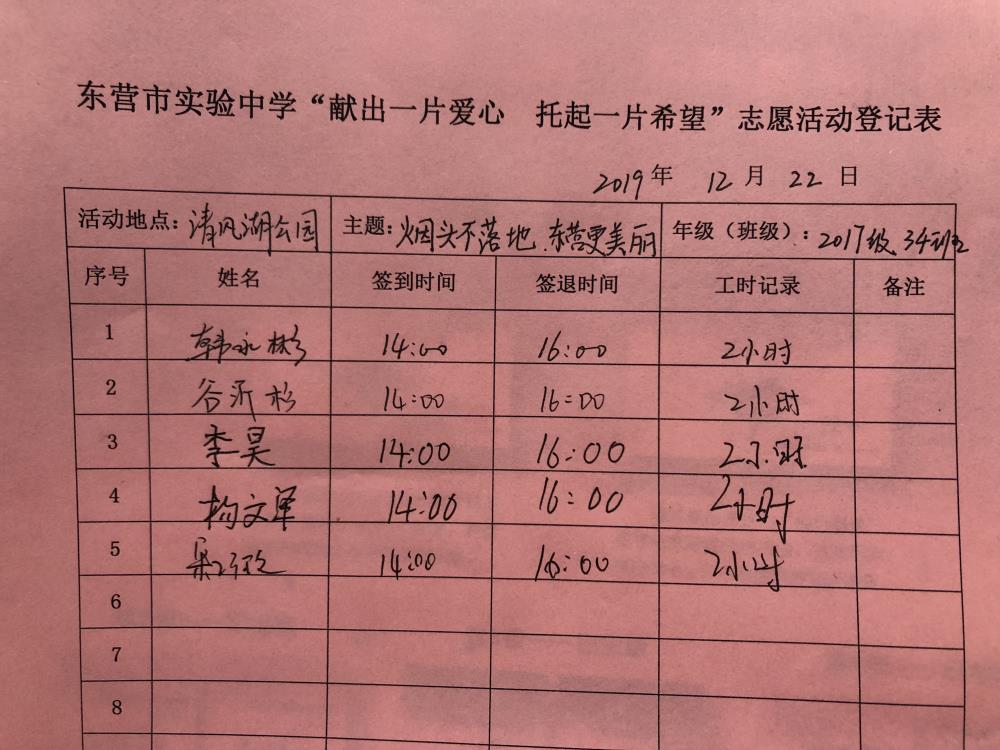 东营市实验中学“献出一片爱心 托起一片希望”志愿活动登记表
2019年 12月 22日
活动地点：清风湖公园 主题：烟头不落地 东营更美丽 年级（班级）：2017级34班
序号 姓名 签到时间 签退时间 工时记录 备注
1 韩永彬 14:00 16:00 2小时
2 谷沂杉 14:00 16:00 2小时
3 李昊 14:00 16:00 2小时
4 杨文军 14:00 16:00 2小时
5 14:00 16:00 2小时
6
7
8